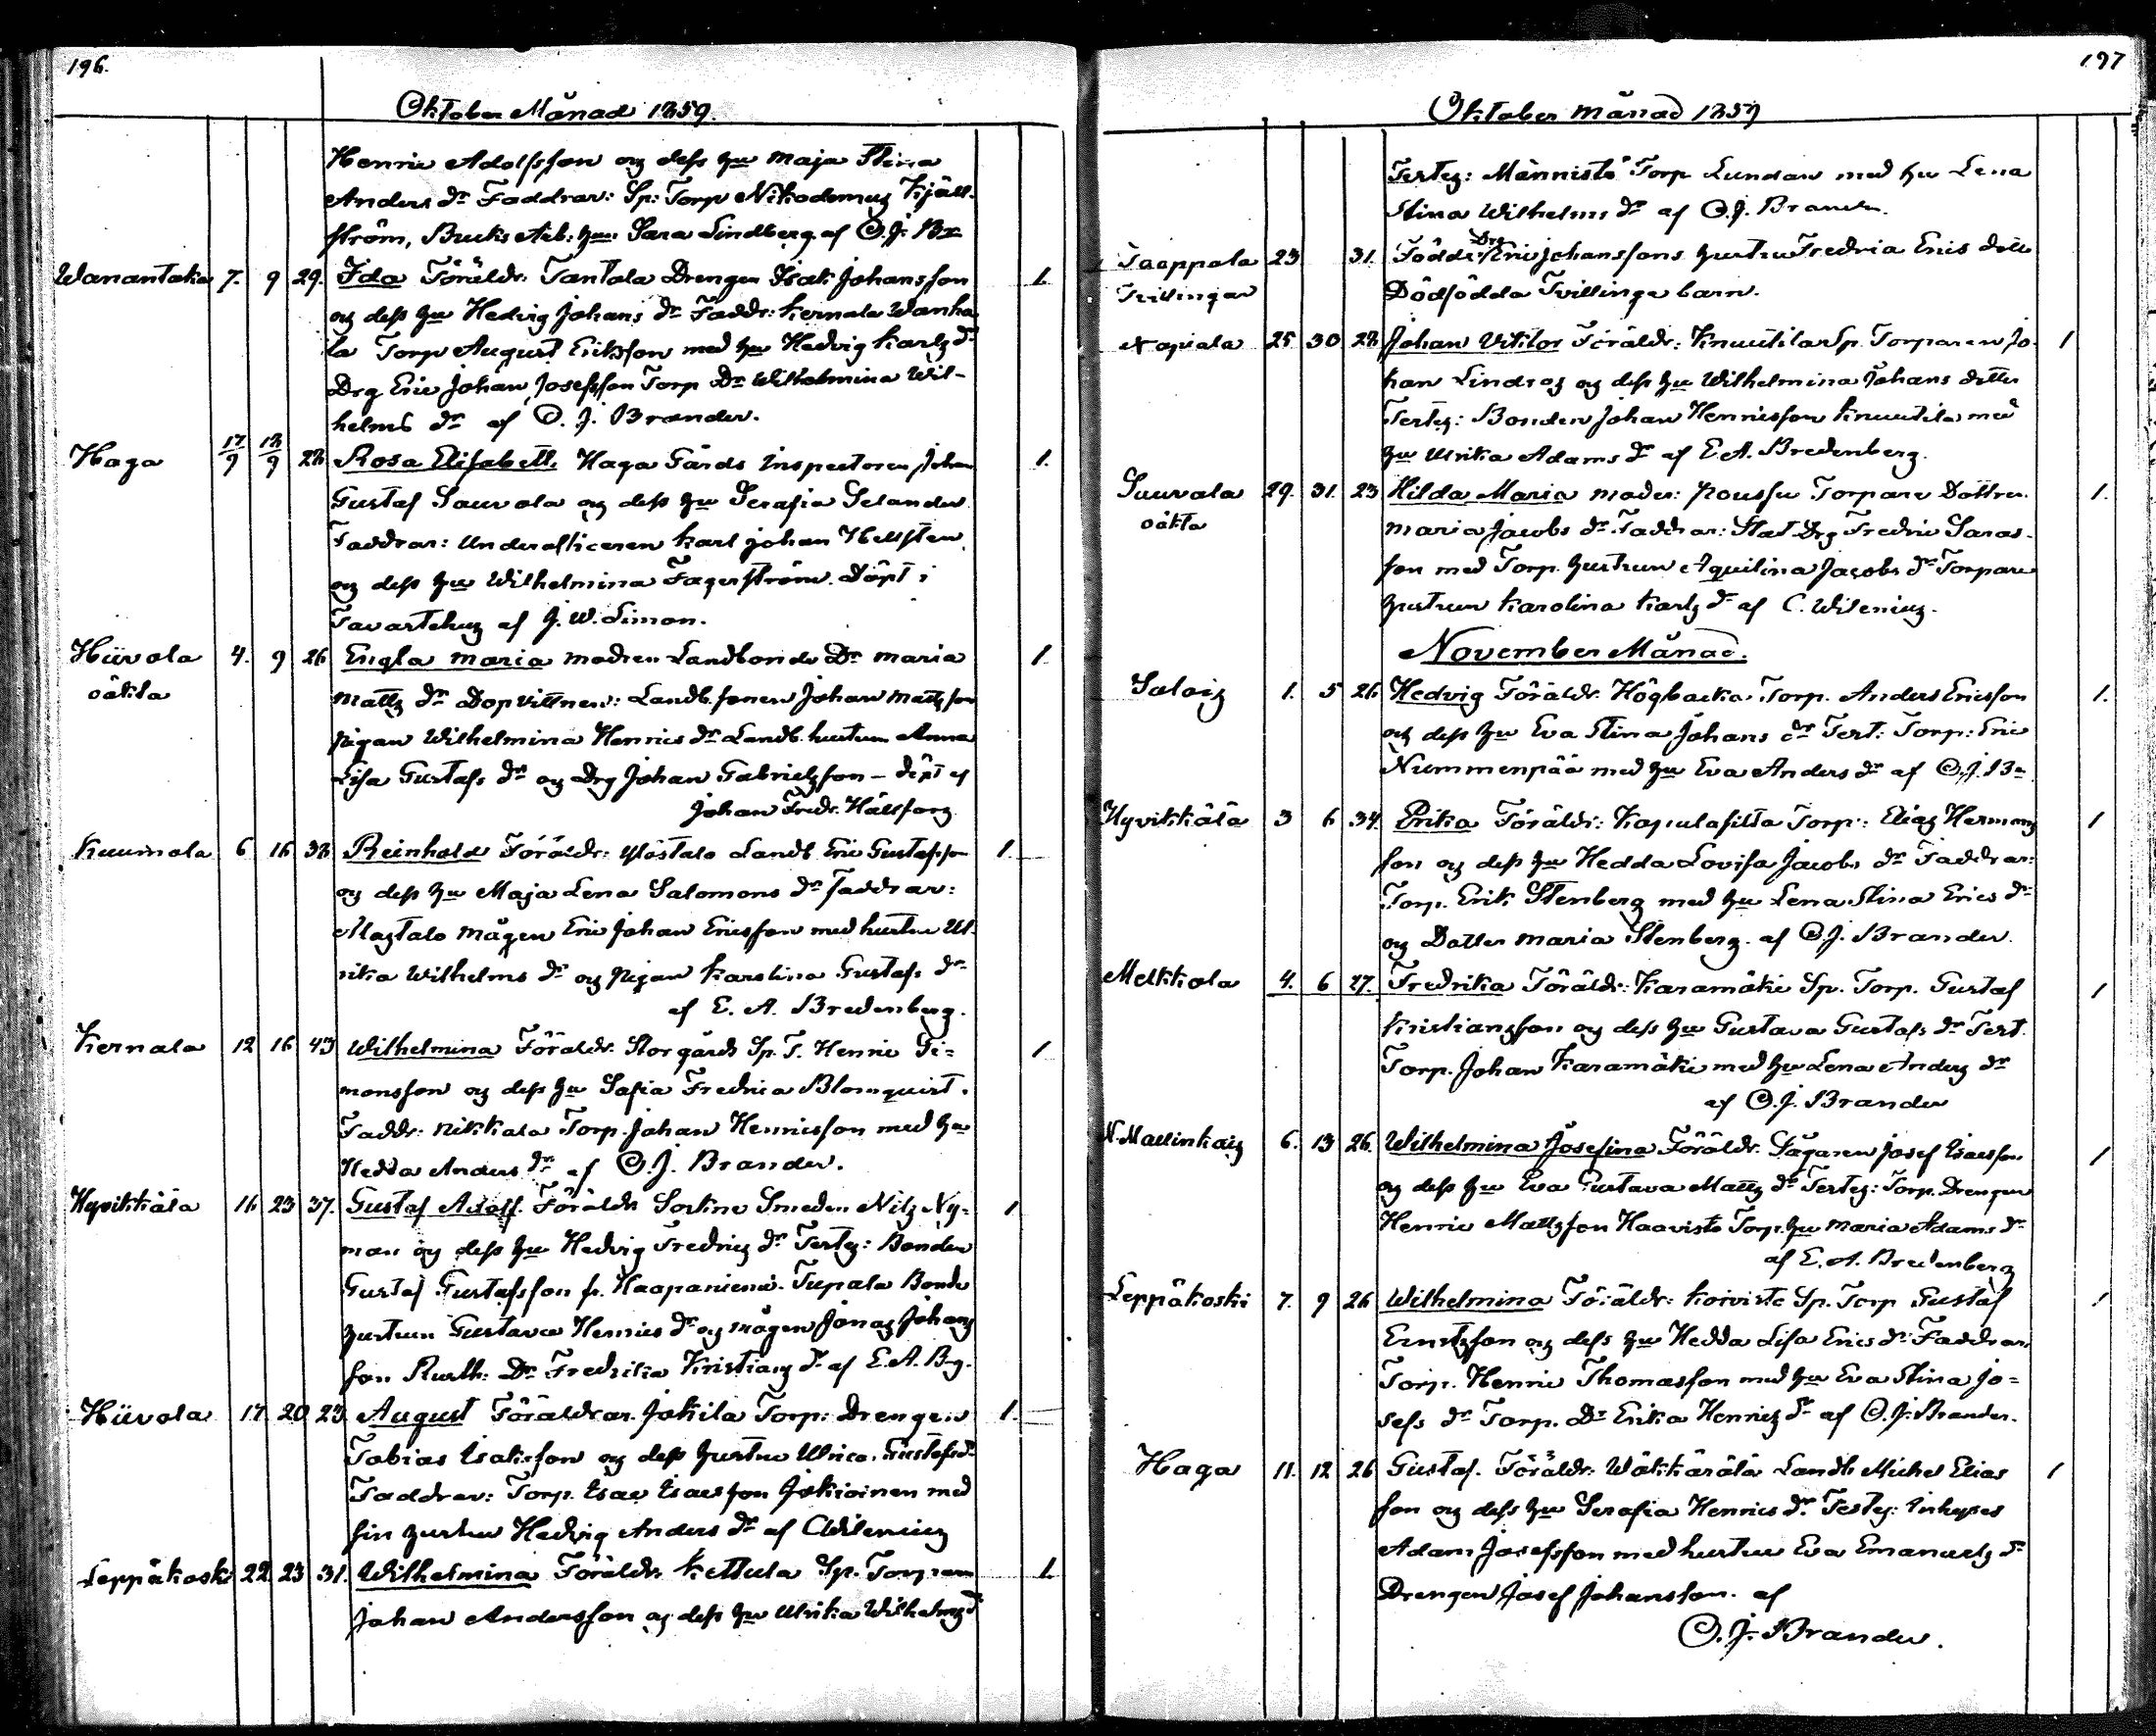 196.
Oktober Månad 1859.
Henric Adolfsson og dess hu Maja Stina
Anders dr Faddrar: Sp: Torp Nikodemus Kjäll-
ström, Bruks Arb: hu Sara Lindberg af O.J. Br
Wanantaka 7. 9 29. Ida Föräldr. Tantala Drengen Isak Johansson 1.
og dess hu Hedvig Johans dr Faddr: Kernala Wanha
la Torp August Eriksson med hu Hedvig Karls dr
Drg Eric Johan Josefsson Torp Dr Wilhelmina Wil-
helms dr af O. J. Brander.
Haga 17/9 18/9 28 Rosa Elisabeth Haga Gårds Inspectoren Johan 1.
Gustaf Sauvala og dess hu Serafia Selander
Faddrar: Underofficeren Karl Johan Hellsten
og dess hu Wilhelmina Fagerström. Döpt i
Tavastehus af J. W. Limon.
Hiivola 4. 9 26 Engla Maria modren Landbonde Dr Maria 1
oäkta Matts dr Dopvittnen: Landb. sonen Johan Mattsson
pigan Wilhelmina Henrics dr Landb. hustrun Anna
Lisa Gustafs dr og Drg Johan Gabrielsson – döpt af
Johan Fredr. Hällfors
Kuumola 6 16 38 Reinhold Föräldr: Ylöstalo Landb Eric Gustafsson 1.
og dess hu Maja Lena Salomons dr Faddrar:
Alastalo mågen Eric Johan Ericsson med hustru Ul-
rika Wilhelms dr og pigan Karolina Gustafs dr
af E. A. Bredenberg.
Kernala 12 16 43 Wilhelmina Föräldr. Storgårds Sp. T. Henric Si=
monsson og dess hu Safia Fredrica Blomquist. 1
Faddr: Nikkala Torp. Johan Henricsson med hu
Hedda Anders dr af O. J. Brander.
Hyvikkälä 16 23 37. Gustaf Adolf. Föräldr Smeden Nils Ny= 1
man og dess hu Hedvig Fredrics dr Testes: Bonden
Gustaf Gustafsson fr. Haapaniemi. Tupala Bonde
hustrun Gustava Henrics dr og mågen Jonas Johans
son Rusth: Dr Fredrika Kristians dr af E. A. Bg.
Hiivola 17 20 23 August Föräldrar Jokila Torp: Drengen 1.
Tobias Isaksson og dess hustru Ulrica Gustafsdr
Faddrar: Torp. Esaes Esaesson Jokioinen med
sin hustru Hedvig Anders dr af C Wilenius
Leppäkoski 22 23 31. Wilhelmina Föräldr. Kettula Sp. Torparen 1.
Johan Andersson og dess hu Ulrika Wilhelms dr
197
Oktober Månad 1859
Testes: Männistö Torp Lundan med hu Lena
Stina Wilhelms dr af O.J. Brander.
Taappola 23 31. Födde Drg Eric Johanssons hustru Fredrica Erics dotter
Tvillingar Dödfödda Tvillinge barn.
Napiala 25 30 28 Johan Viktor Föräldr: Knuutila Sp. Torparen Jo- 1
han Lindroos og dess hu Wilhelmina Johans dotter
Testes: Bonden Johan Henricsson Knuutila med
hu Ulrika Adams dr af E. A. Bredenberg.
Sauvala 29. 31. 23 Hilda Maria moder: Poussu Torpare Dottren 1.
oäkta Maria Jacobs dr. Faddrar: Stat Drg Fredric Saras-
son med Torp. hustrun Aquilina Jacobs dr Torpare
hustrun Karolina Karls dr af C. Wilenius.
November Månad.
Salois 1. 5 26 Hedvig Föräldr. Högbacka Torp. Anders Ericsson 1.
og dess hu Eva Stina Johans dr Test: Torp: Eric
Nummenpää med hu Eva Anders dr af O.J. Br
Hyvikkälä 3 6 34. Erika Föräldr: Kapulasilta Torp: Elias Hermans 1
son og dess hu Hedda Lovisa Jacobs dr Faddrar:
Torp. Erik Stenberg med hu Lena Stina Erics dr
og Dotter Maria Stenberg. af O J. Brander.
Melkkola 4. 6 27. Fredrika Föräldr: Karamäki Sp. Torp. Gustaf 1
Kristiansson og dess hu Gustava Gustafs dr Test.
Torp. Johan Karamäki med hu Lena Anders dr
af O. J. Brander
N. Mallinkais 6. 13 26. Wilhelmina Josefina Föräldr. Sågaren Josef Esaesson 1
og dess hu Eva Gustava Matts dr Testes: Torp. Drengen
Henric Mattsson Haavisto Torp. hu Maria Adams dr
af E. A. Bredenberg
Leppäkoski 7. 9 26 Wilhelmina Föräldr: Koivisto Sp. Torp Gustaf 1
Ernstsson og dess hu Hedda Lisa Erics dr Faddrar
Torp. Henric Thomasson med hu Eva Stina Jo=
sefs dr Torp. Dr Erika Henrics dr af O. J. Brander.
Haga 11. 12 26 Gustaf. Föräldr: Wäkkärälä Landb Michel Elias 1
son og dess hu Serafia Henrics dr. Testes: Inhyses
Adam Josefsson med hustru Eva Emanuels dr
Drengen Josef Johansson. af
O. J. Brander.